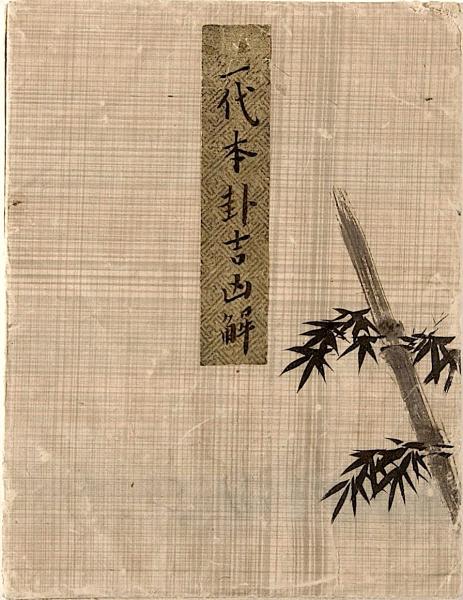 一代本卦吉凶解